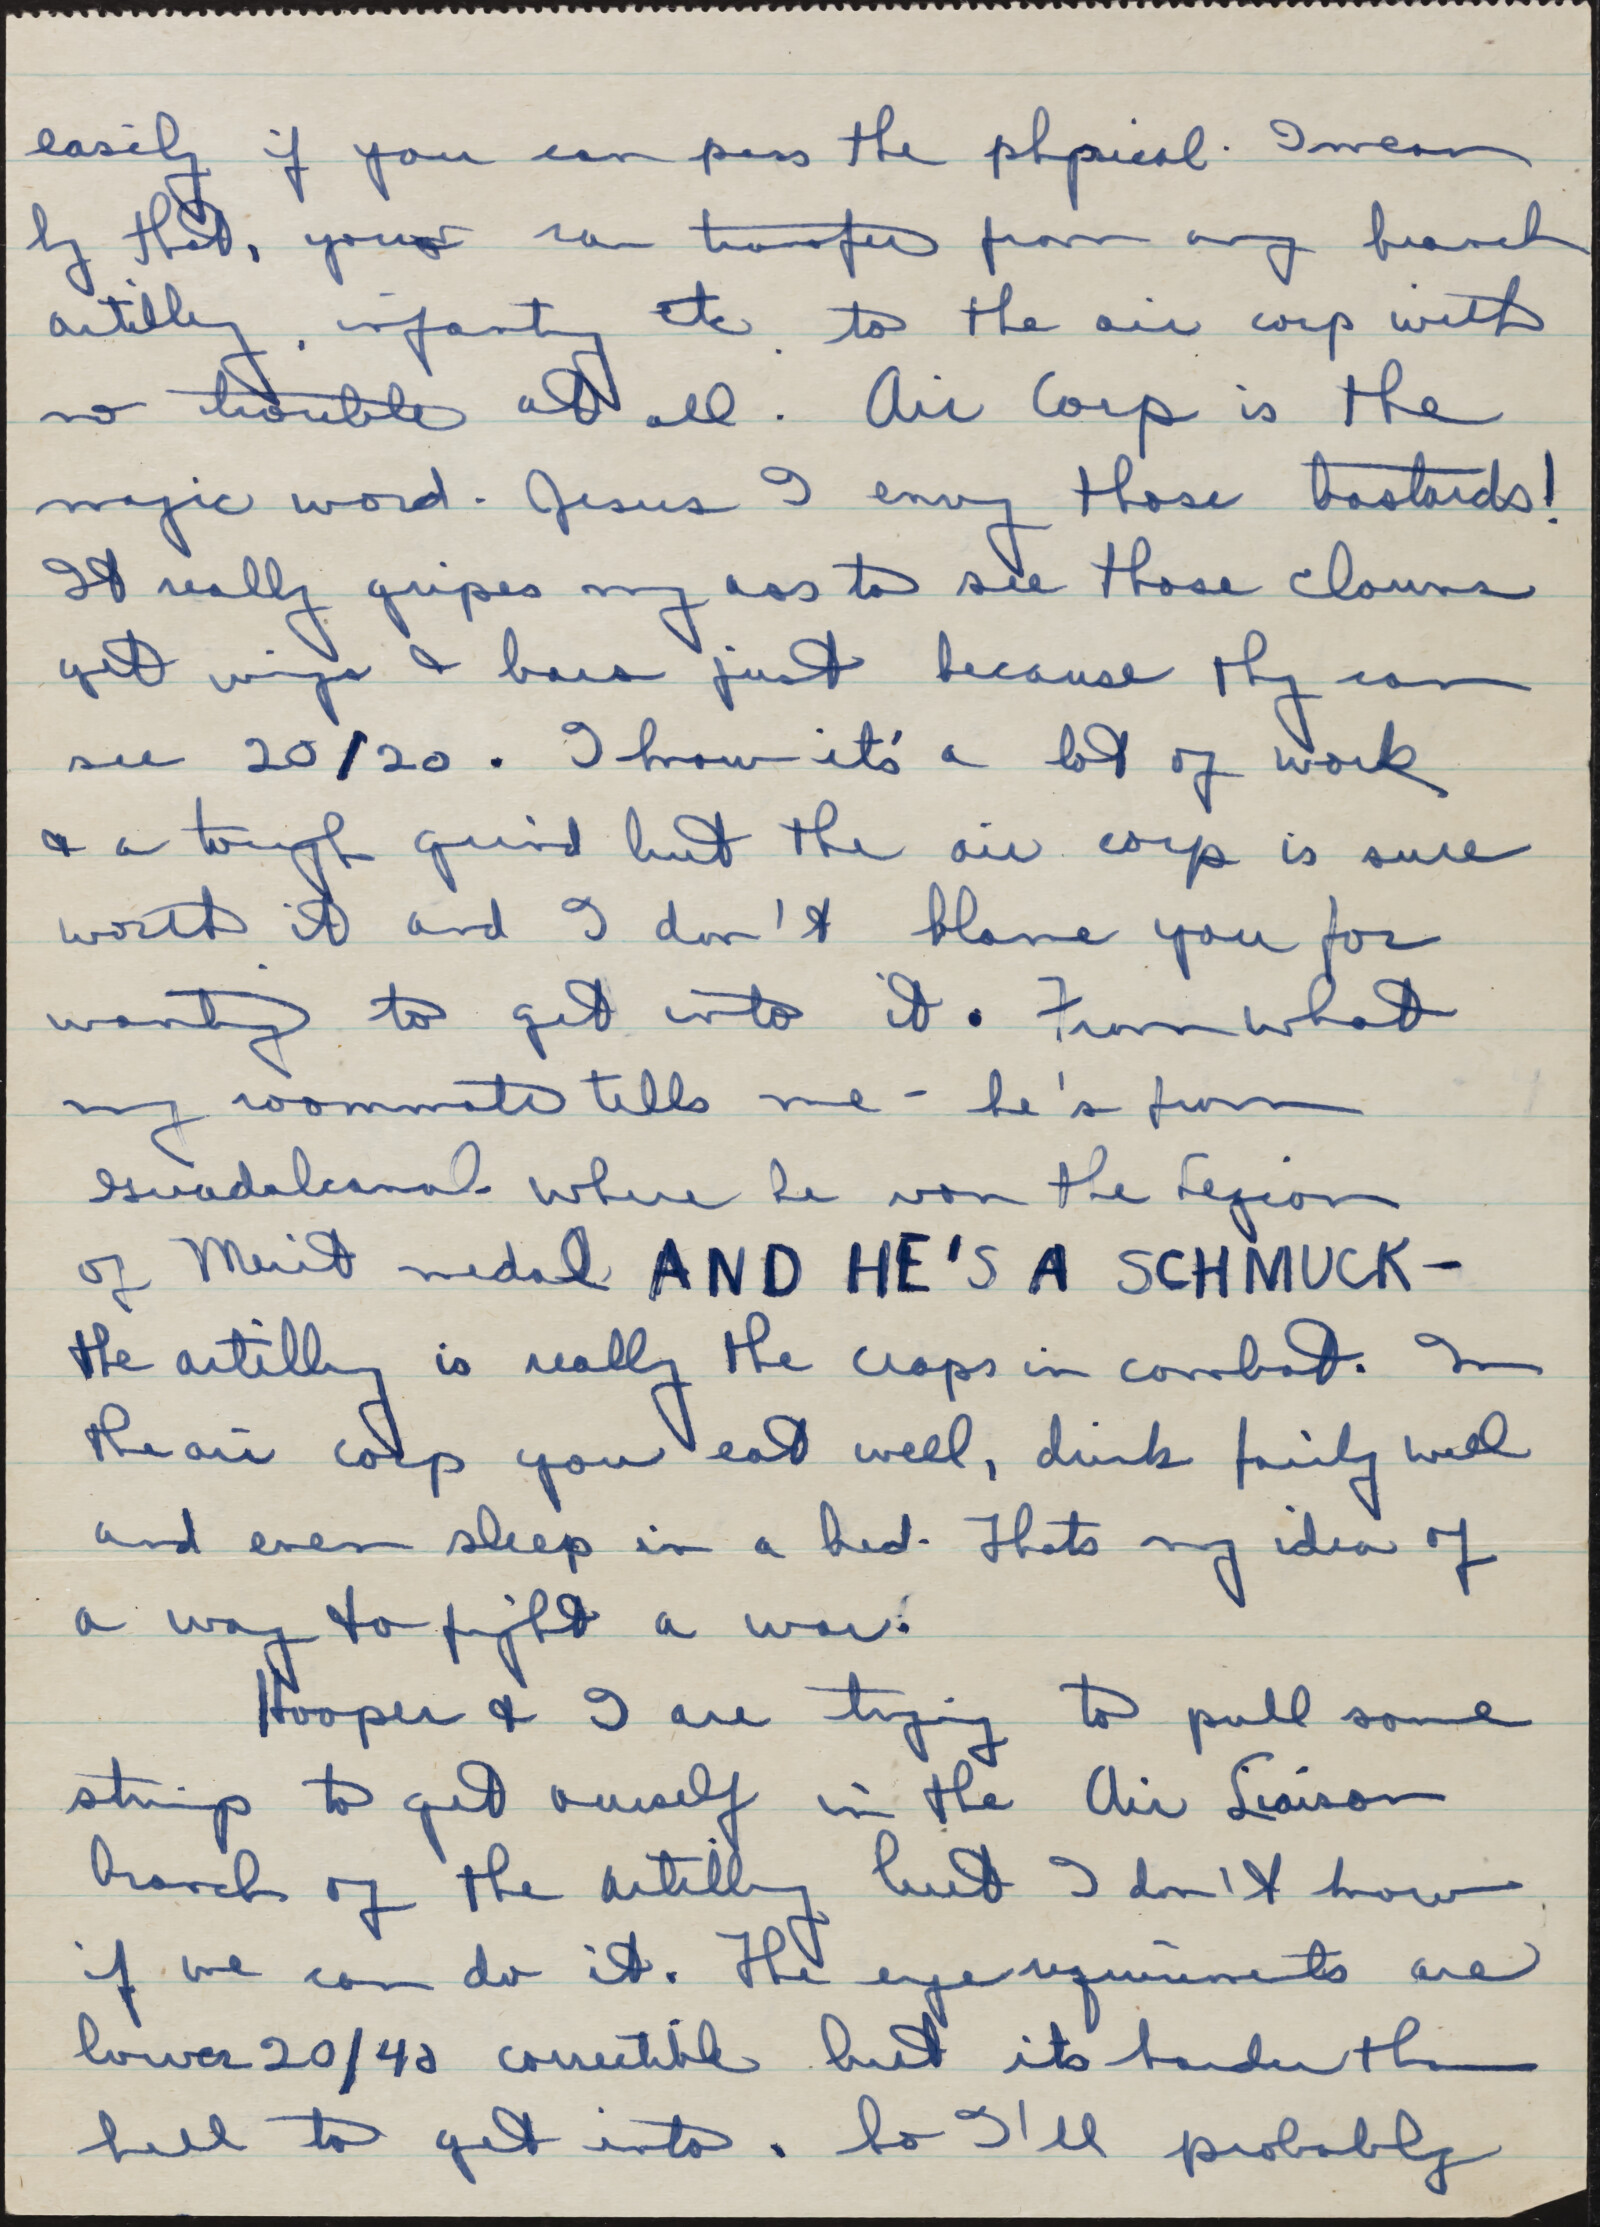 easily if you can pass the physical. I mean
by that, you can transfer from any branch
artillery, infantry etc. to the air corp with
no trouble at all. Air Corp is the
magic word. Jesus I envy those bastards!
It really gripes my ass to see those clowns
get wings & bars just because they can
see 20/20. I know it's a lot of work
& a tough grind but the air corp is sure
worth it and I don't blame you for
wanting to get into it. From what
my roommate tells me - he's from
Guadalcanal where he won the Legion
of Merit medal AND HE'S A SCHMUCK -
the artillery is really the craps in combat. In
the air corp you eat well, drink fairly well
and even sleep in a bed. Thats my idea of
a way to fight a war.
Hooper & I are trying to pull some
strings to get ourself in the Air Liaison
branch of the artillery but I don't know
if we can do it. The eye requirements are
lower 20/40 correctible but its harder than
hell to get into. So I'll probably